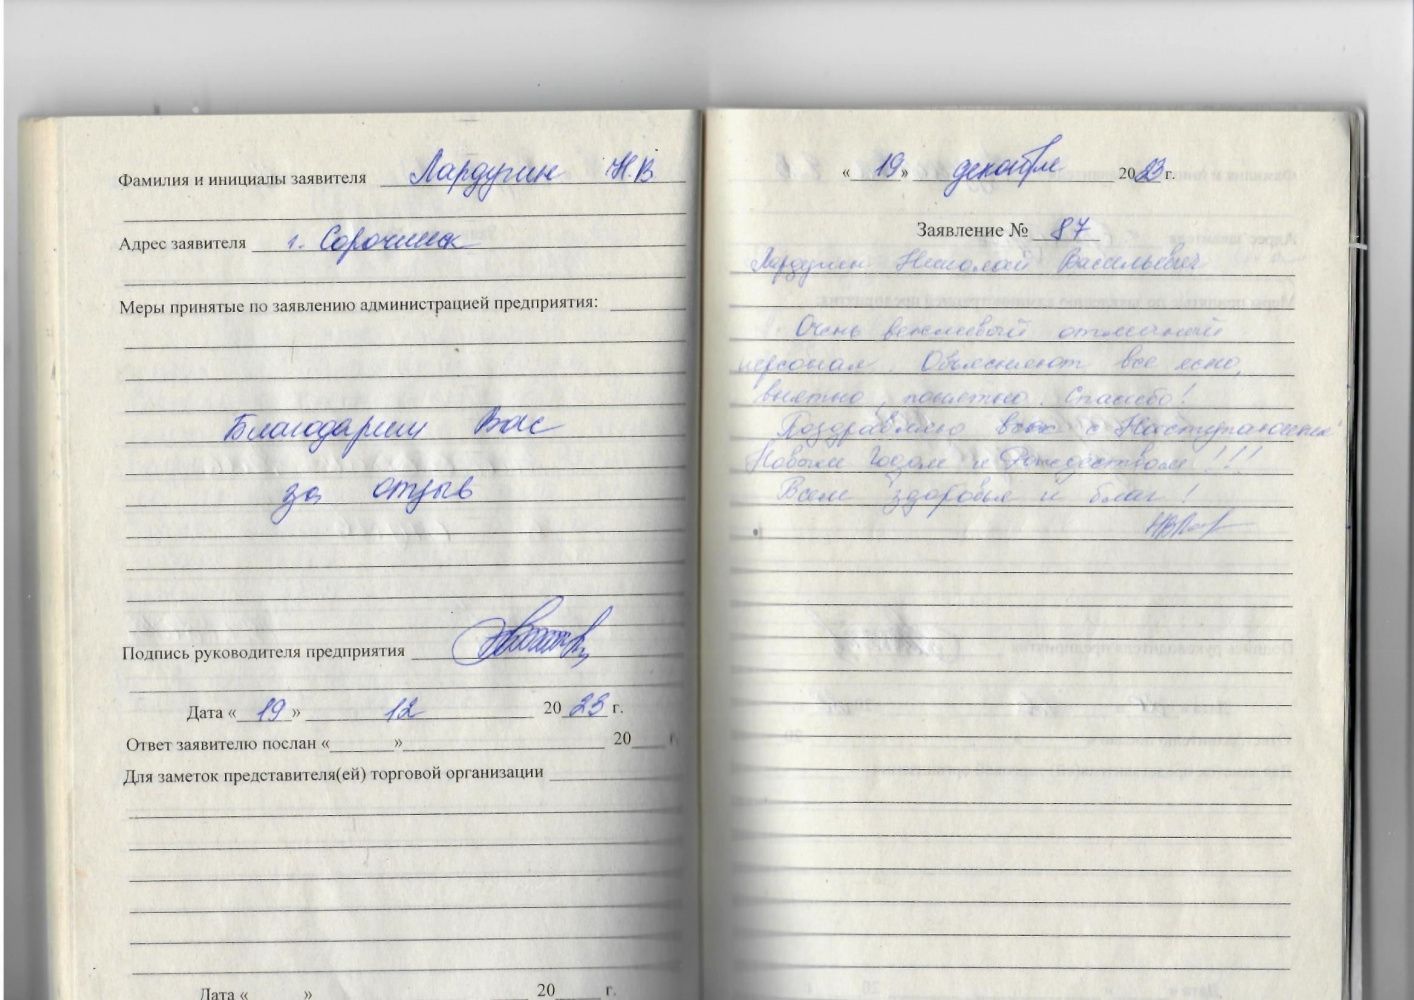 Фамилия и инициалы заявителя Лардугин Н.В
Адрес заявителя г. Сорочинск
Меры принятые по заявлению администрацией предприятия:
Благодарим Вас
за отзыв
Подпись руководителя предприятия
Дата «19» 12 2023 г.
Ответ заявителю послан «» 20 г.
Для заметок представителя(ей) торговой организации
Дата « » 20 г.
«19» декабря 2023 г.
Заявление № 87
Лардугин Николай Васильевич
Очень вежливый отличный
персонал. Объясняют все ясно,
внятно, понятно. Спасибо!
Поздравляю всех с Наступающим
Новым Годом и Рождеством!!!
Всем здоровья и благ!